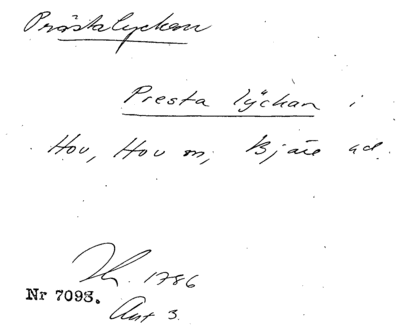 Prästalyckan
Presta lÿckan i
Hov, Hov sn, Bjäre hd.
Ak. 1786
Nr 7093.
Akt 3.